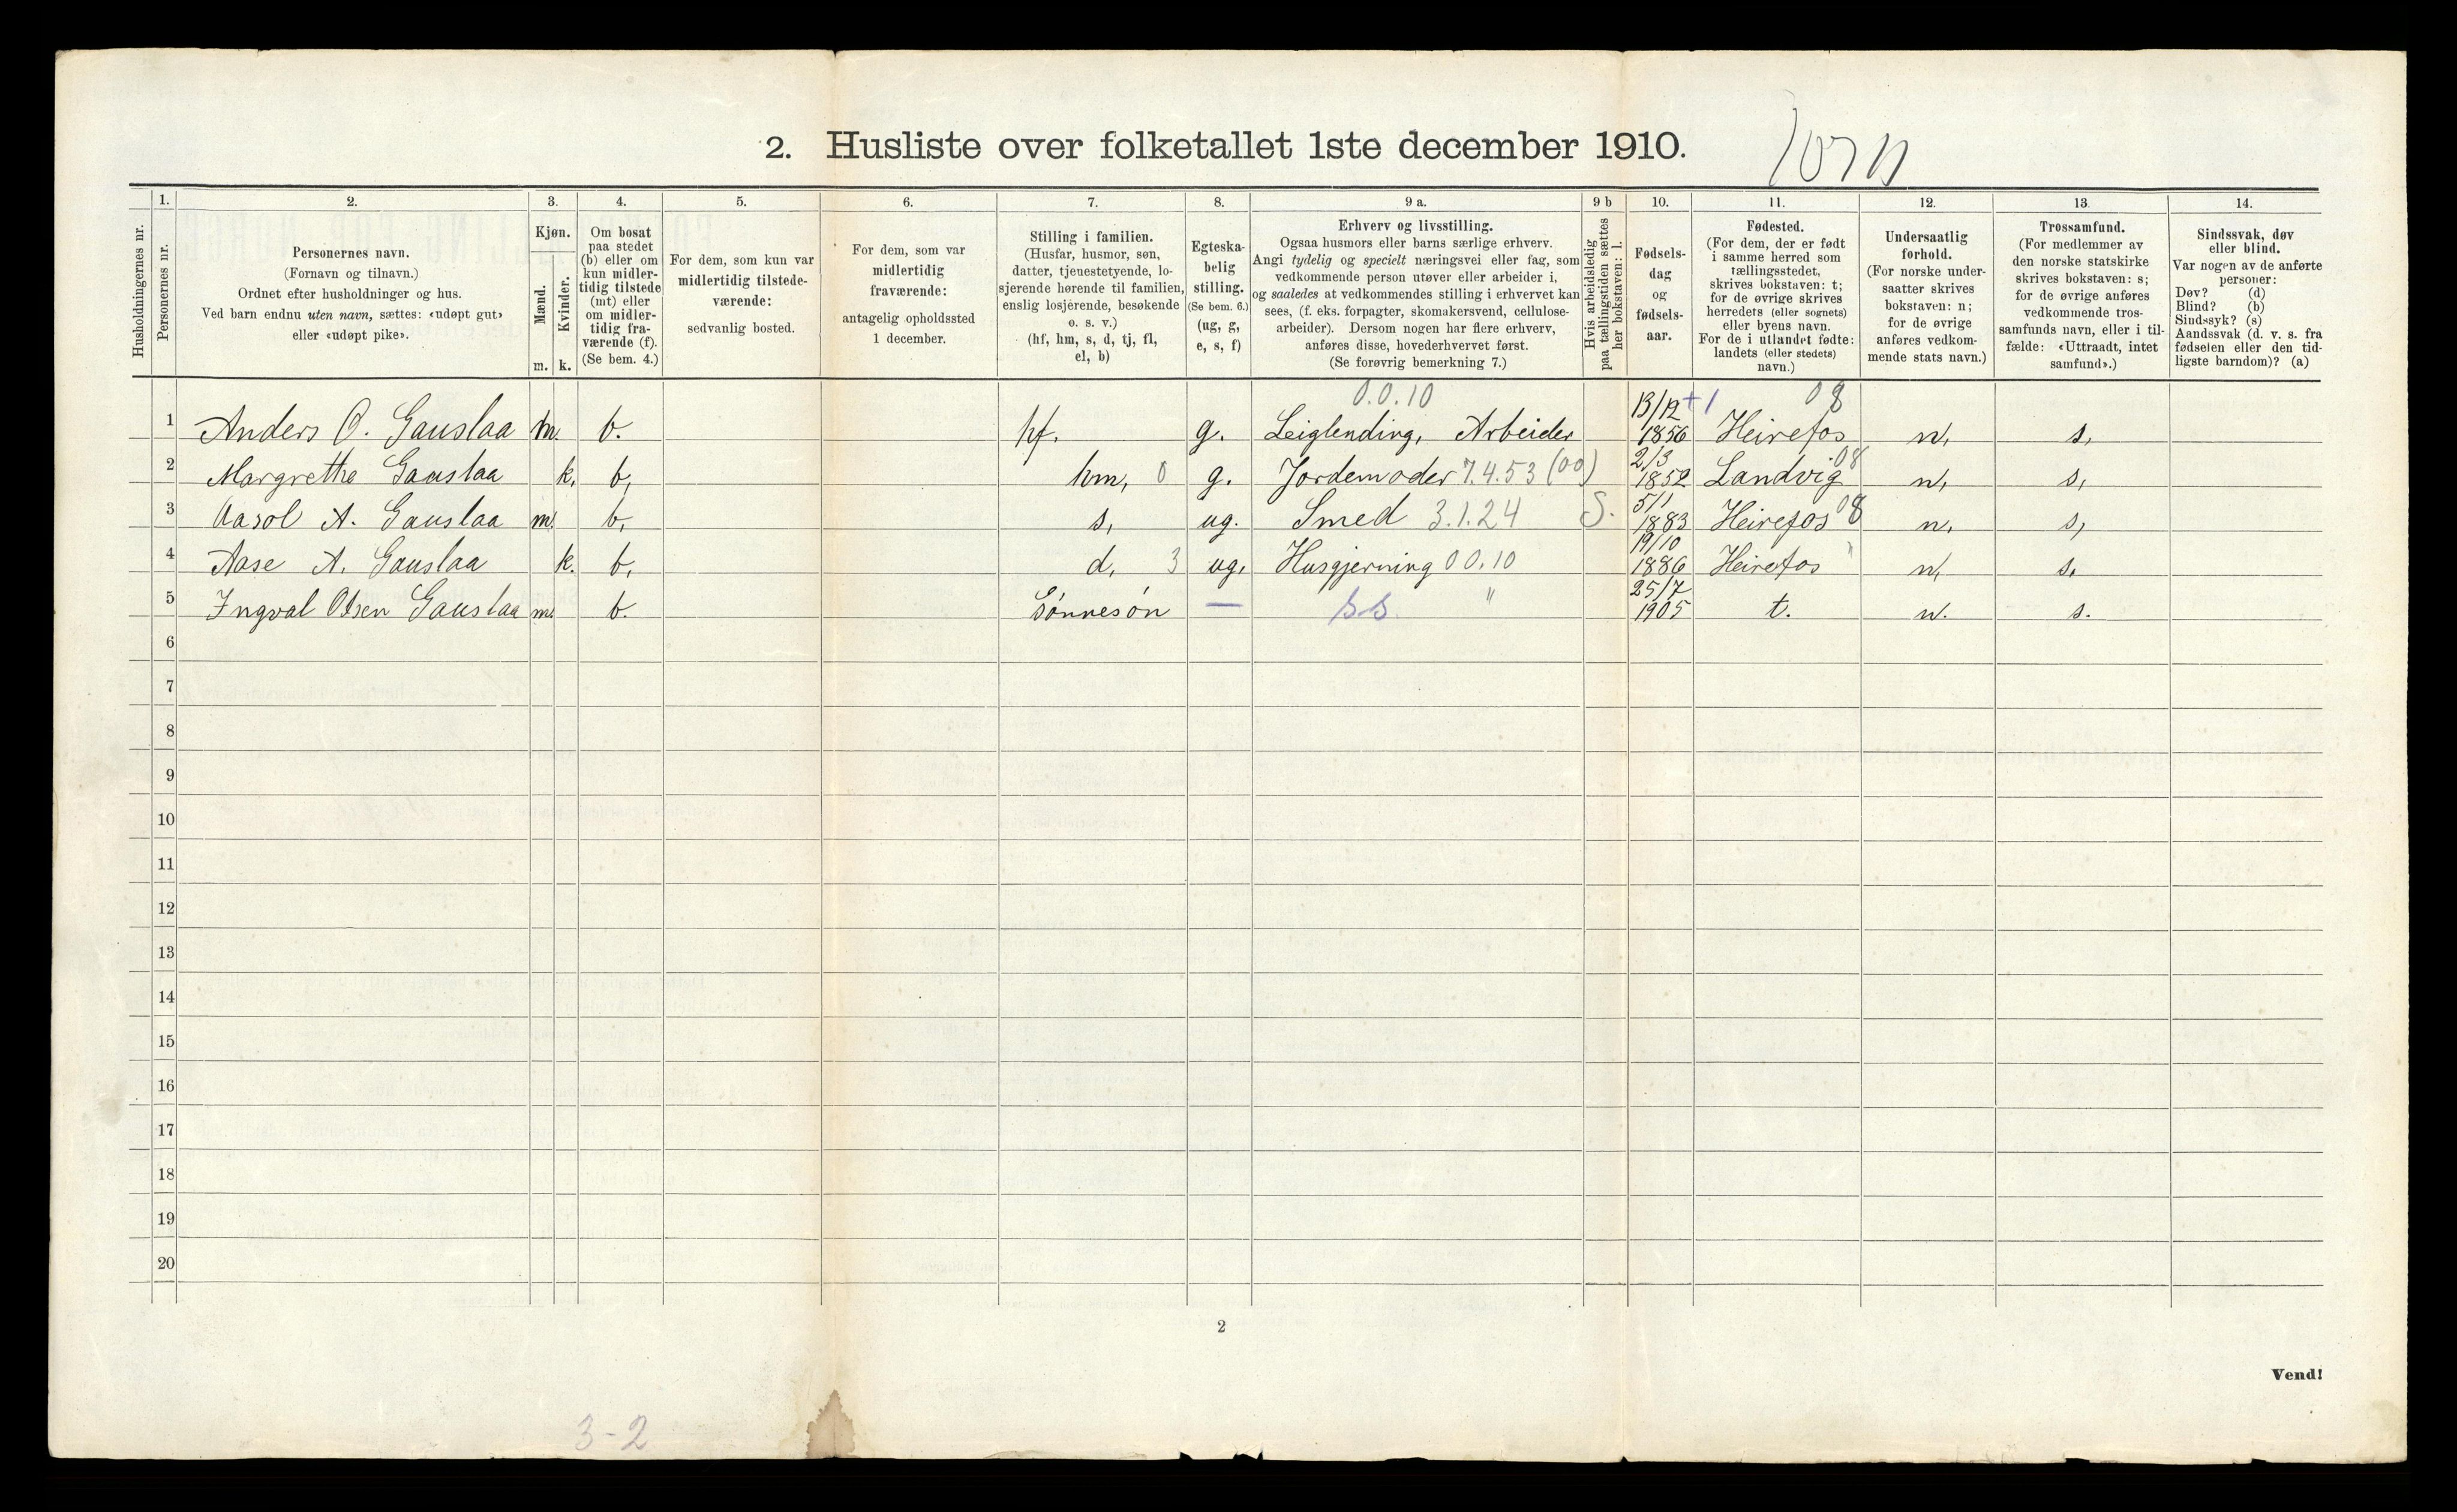 2. Husliste over folketallet 1ste december 1910.
Husholdningernes nr.
1. Personernes nr.
2. Personernes navn.
(Fornavn og tilnavn.)
Ordnet efter husholdninger og hus.
Ved barn endnu uten navn, sættes: «udøpt gut»
eller «udøpt pike».
3. Kjøn.
Mænd. m.
Kvinder. k.
4. Om bosat
paa stedet
(b) eller om
kun midler-
tidig tilstede
(mt) eller
om midler-
tidig fra-
værende (f).
(Se bem. 4.)
5. For dem, som kun var
midlertidig tilstede-
værende:
sedvanlig bosted.
6. For dem, som var
midlertidig
fraværende:
antagelig opholdssted
1 december.
7. Stilling i familien.
(Husfar, husmor, søn,
datter, tjenestetyende, lo-
sjerende hørende til familien,
enslig losjerende, besøkende
o. s. v.)
(hf, hm, s, d, tj, fl,
el, b)
8. Egteska-
belig
stilling.
(Se bem. 6.)
(ug, g,
e, s, f)
9 a. Erhverv og livsstilling.
Ogsaa husmors eller barns særlige erhverv.
Angi tydelig og specielt næringsvei eller fag, som
vedkommende person utøver eller arbeider i,
og saaledes at vedkommendes stilling i erhvervet kan
sees, (f. eks. forpagter, skomakersvend, cellulose-
arbeider). Dersom nogen har flere erhverv,
anføres disse, hovederhvervet først.
(Se forøvrig bemerkning 7.)
9 b Hvis arbeidsledig
paa tællingstiden sættes
her bokstaven: l.
10. Fødsels-
dag
og
fødsels-
aar.
11. Fødested.
(For dem, der er født
i samme herred som
tællingsstedet,
skrives bokstaven: t;
for de øvrige skrives
herredets (eller sognets)
eller byens navn.
For de i utlandet fødte:
landets (eller stedets)
navn.)
12. Undersaatlig
forhold.
(For norske under-
saatter skrives
bokstaven: n;
for de øvrige
anføres vedkom-
mende stats navn.)
13. Trossamfund.
(For medlemmer av
den norske statskirke
skrives bokstaven: s;
for de øvrige anføres
vedkommende tros-
samfunds navn, eller i til-
fælde: «Uttraadt, intet
samfund».)
14. Sindssvak, døv
eller blind.
Var nogen av de anførte
personer:
Døv? (d)
Blind? (b)
Sindssyk? (s)
Aandssvak (d. v. s. fra
fødselen eller den tid-
ligste barndom)? (a)
0.0.10 13/12 +1 08
1 Anders O. Gauslaa m. b. hf. g. Leiglending, Arbeider 1856 Heirefos n, s,
2/3 08
2 Margrethe Gauslaa k, b, hm, 0 g. Jordemoder 7.4.53 (00) 1852 Landvig n, s,
5/1
3 Aasol A. Gauslaa m. b, s, ug. Smed 3.1.24 S. 1883 Heirefos 08 n, s,
19/10
4 Aase A. Gauslaa k. b, d, 3 ug, Husgjerning 00.10 1886 Heirefos " n, s,
25/7
5 Ingval Olsen Gauslaa m. b. Sønnesøn — ss. " 1905 t. n. s.
6
7
8
9
10
11
12
13
14
15
16
17
18
19
20
2
Vend!
3-2